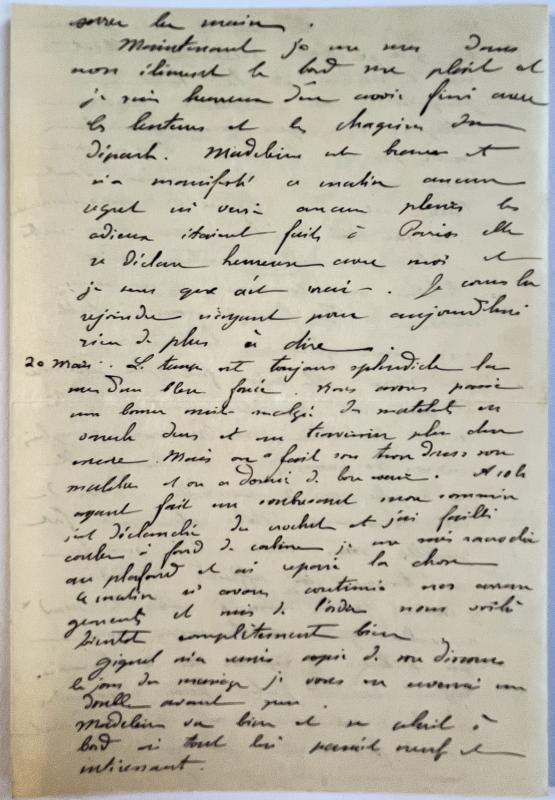 serrer la main.
Maintenant je me sens dans
mon élément le bord me plait et
je suis heureux d'en avoir fini avec
les lenteurs et les chagrins du
départ. Madeleine est brave et
n'a manifesté ce matin aucun
regret ni versé aucun pleurs les
adieux étaient faits à Paris elle
se déclare heureuse avec moi et
je sens que c'est vrai. Je cours la
rejoindre n'ayant pour aujourd'hui
rien de plus à dire.
20 mars. Le temps est toujours splendide la
mer d'un bleu foncé. Nous avons passé
une bonne nuit malgré des matelats en
dur et un traversin plus dur
encore. Mais on a fait son trou dans son
matelas et on a dormi de bon. A 10h
ayant fait un soubresaut mon
s'est déclanché du crochet et j'ai failli
couler à fond de cabine je me suis raccroché
au plafond et ai réparé la chose
Ce matin n. avons continué nos arran
gements et mis de l'ordre nous voilà
bientot complètement bien
Giquel m'a remis copie de son discours
le jour du mariage je vous en enverrai un
double avant peu.
Madeleine va bien et se plait à
bord où tout lui parait neuf et
intéressant.